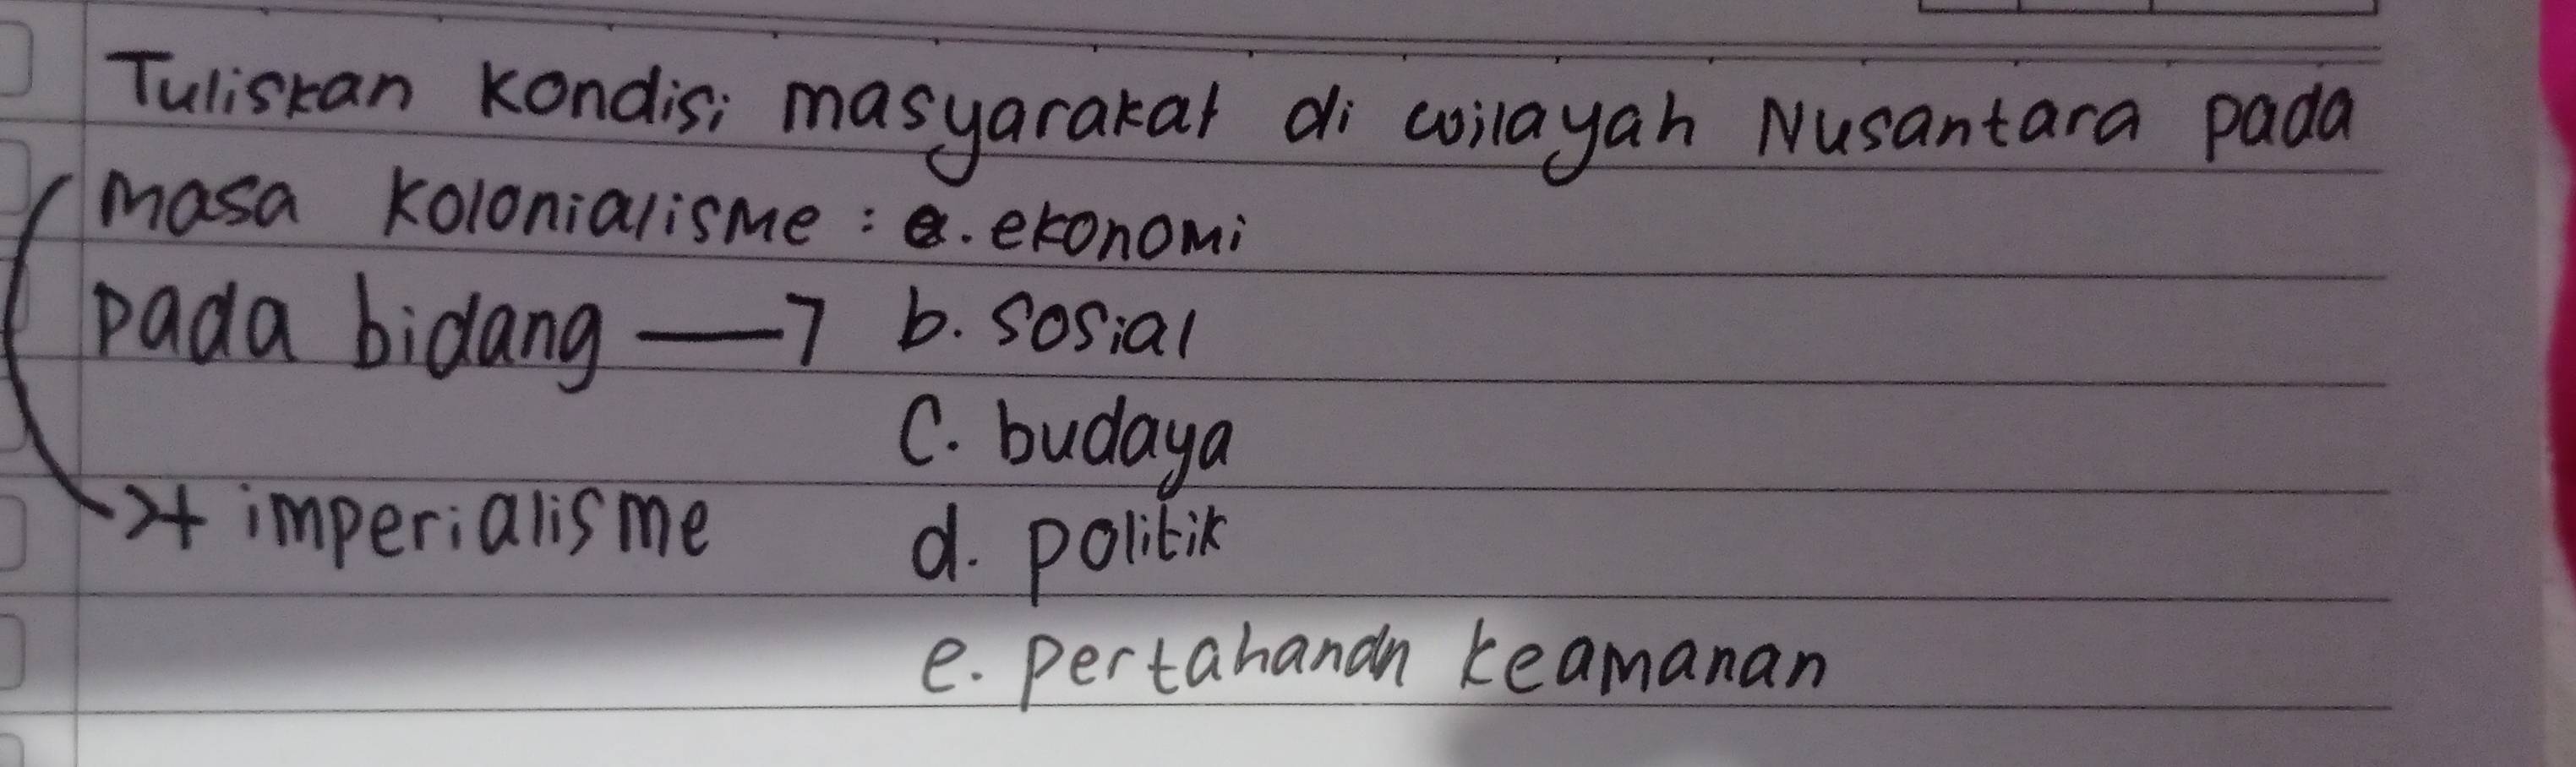 Tuliskan kondisi masyarakat di wilayah Nusantara pada
masa kolonialisme : a. ekonomi
pada bidang → b. sosial
C. budaya
→ + imperialisme d. politik
e. pertahanan keamanan